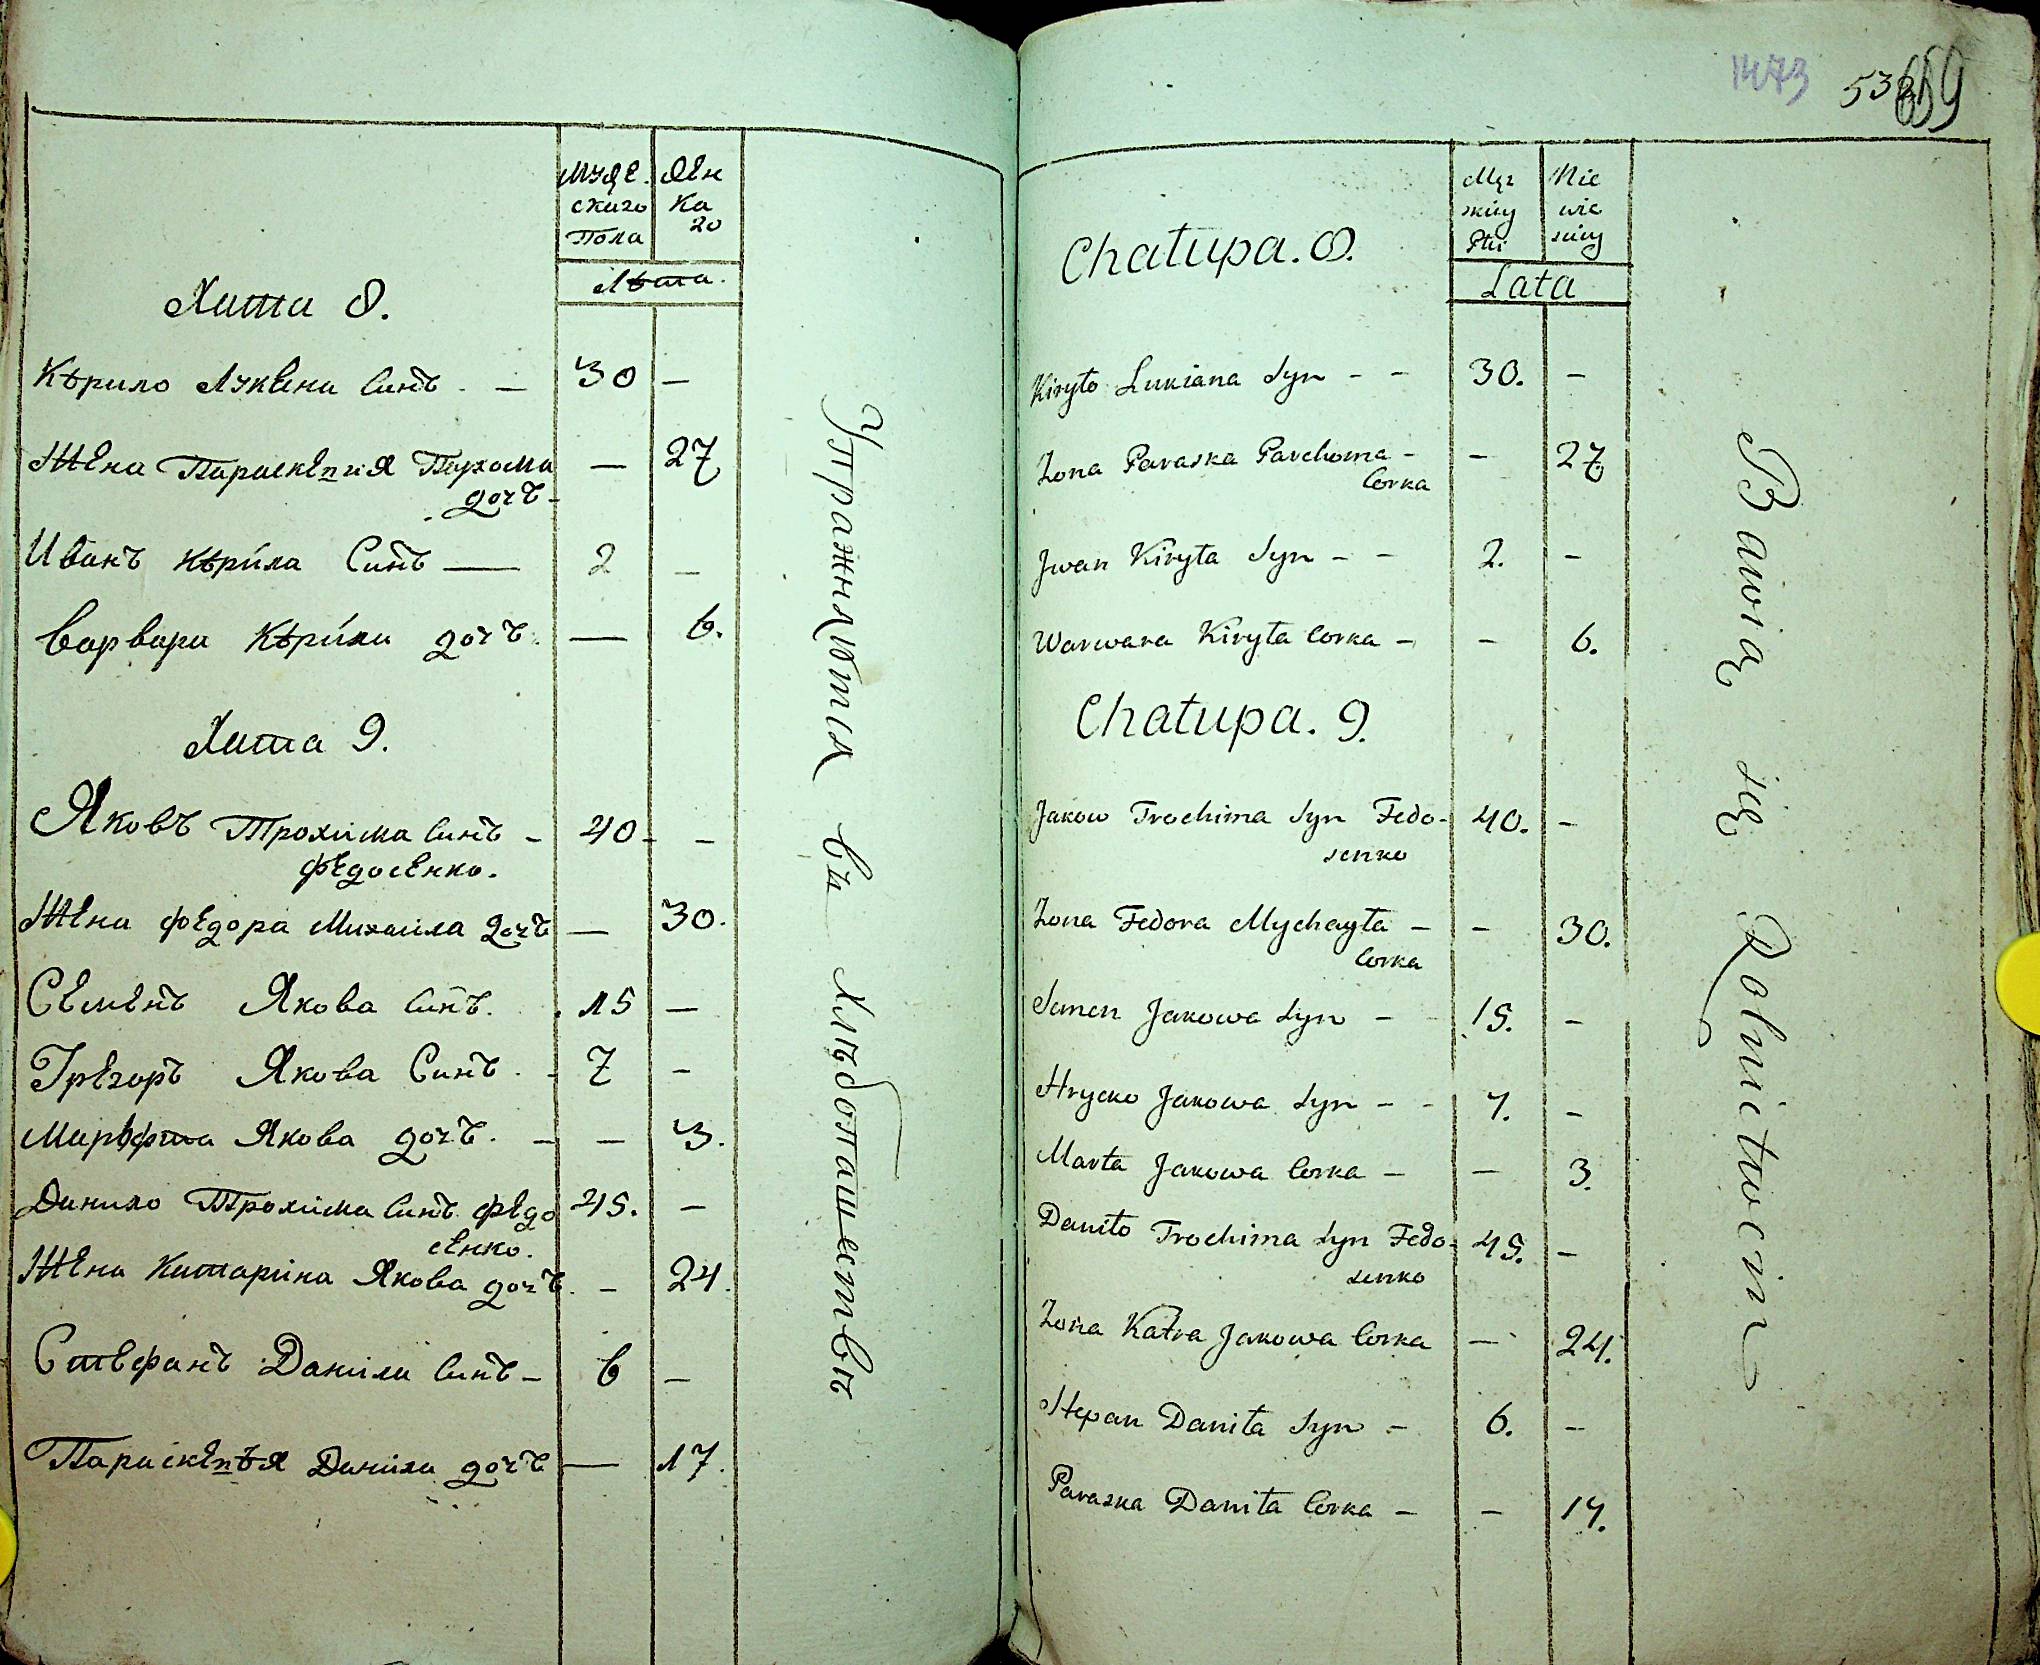 Мужескаго Пола | Женскаго
Лѣта.
Хата 8.
Кѣрило Лукѣяна Синъ - — 30 —
Жена Параскепия Пархома — 27
дочъ -
Иванъ Кѣрила Синъ — 2 —
Варвара Кѣрила дочъ. — 6.
Хата 9.
Яковъ Трохима Синъ - 40 - -
Федосенко.
Жена Федора Михаила дочъ — 30.
Семенъ Якова Синъ. 15 —
Грегоръ Якова Синъ. - 7 -
Марѳфта Якова дочъ. - - 3.
Данило Трохима Синъ Федо 45. -
сенко.
Жена Катарина Якова дочъ. - 24.
Стефанъ Данила Синъ - 6 -
Параскепѣя Данила дочъ — 17.
Упражняются въ хлѣбопашествѣ
1473 53 659
Chatupa. 8.
Lata
Kiryło Lukiana Syn - - 30. -
Żona Paraska Parchoma - - 27
Corka
Jwan Kiryła Syn - - 2. -
Warwara Kiryła Corka - - 6.
Chatupa. 9.
Jakow Trochima Syn Fedo- 40. -
senko
Żona Fedora Mychayła - - 30.
Corka
Semen Jakowa Syn - - 15. -
Hrycko Jakowa Syn - - 7. -
Marta Jakowa Corka - - 3.
Daniło Trochima Syn Fedo- 45. -
senko
Żona Katra Jakowa Corka - 24.
Stepan Daniła Syn - 6. -
Paraska Daniła Corka - - 17.
Bawią się Rolnictwem